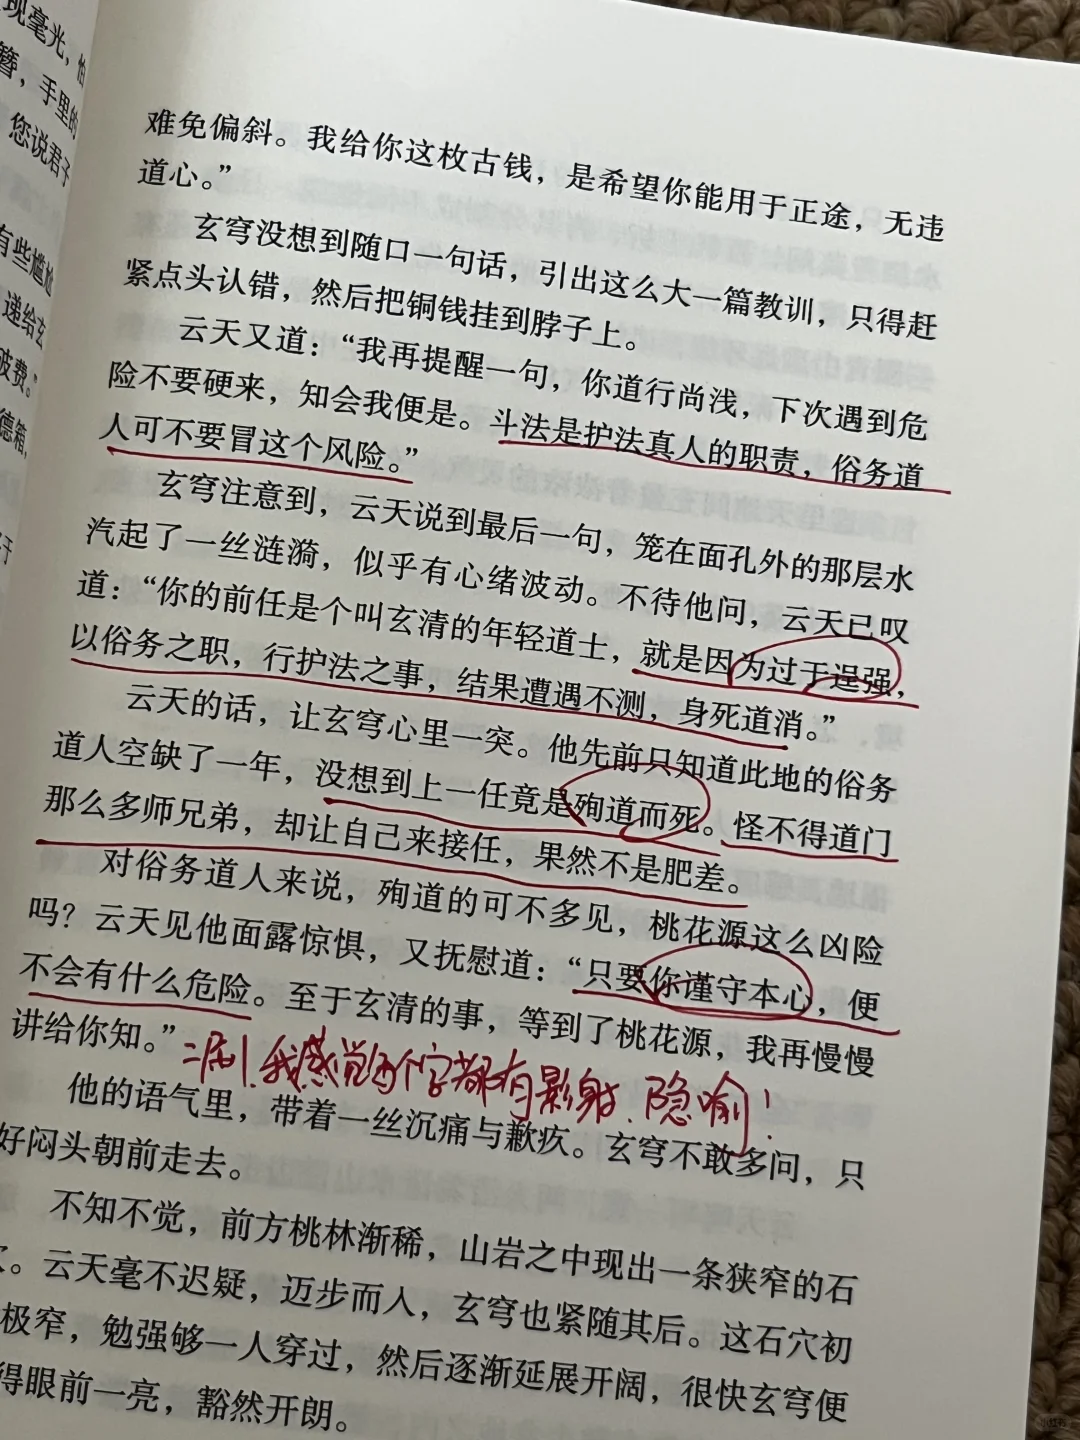 现毫光，怕
簪，手里的
您说君子
有些尴尬
递给玄
破费。”
德箱，
难免偏斜。我给你这枚古钱，是希望你能用于正途，无违
道心。”
玄穹没想到随口一句话，引出这么大一篇教训，只得赶
紧点头认错，然后把铜钱挂到脖子上。
云天又道：“我再提醒一句，你道行尚浅，下次遇到危
险不要硬来，知会我便是。斗法是护法真人的职责，俗务道
人可不要冒这个风险。”
玄穹注意到，云天说到最后一句，笼在面孔外的那层水
汽起了一丝涟漪，似乎有心绪波动。不待他问，云天已叹
道：“你的前任是个叫玄清的年轻道士，就是因为过于逞强，
以俗务之职，行护法之事，结果遭遇不测，身死道消。”
云天的话，让玄穹心里一突。他先前只知道此地的俗务
道人空缺了一年，没想到上一任竟是殉道而死。怪不得道门
那么多师兄弟，却让自己来接任，果然不是肥差。
对俗务道人来说，殉道的可不多见，桃花源这么凶险
吗？云天见他面露惊惧，又抚慰道：“只要你谨守本心，便
不会有什么危险。至于玄清的事，等到了桃花源，我再慢慢
讲给你知。”
二刷，我感觉每个字都有影射、隐喻！
他的语气里，带着一丝沉痛与歉疚。玄穹不敢多问，只
好闷头朝前走去。
不知不觉，前方桃林渐稀，山岩之中现出一条狭窄的石
。云天毫不迟疑，迈步而入，玄穹也紧随其后。这石穴初
极窄，勉强够一人穿过，然后逐渐延展开阔，很快玄穹便
得眼前一亮，豁然开朗。